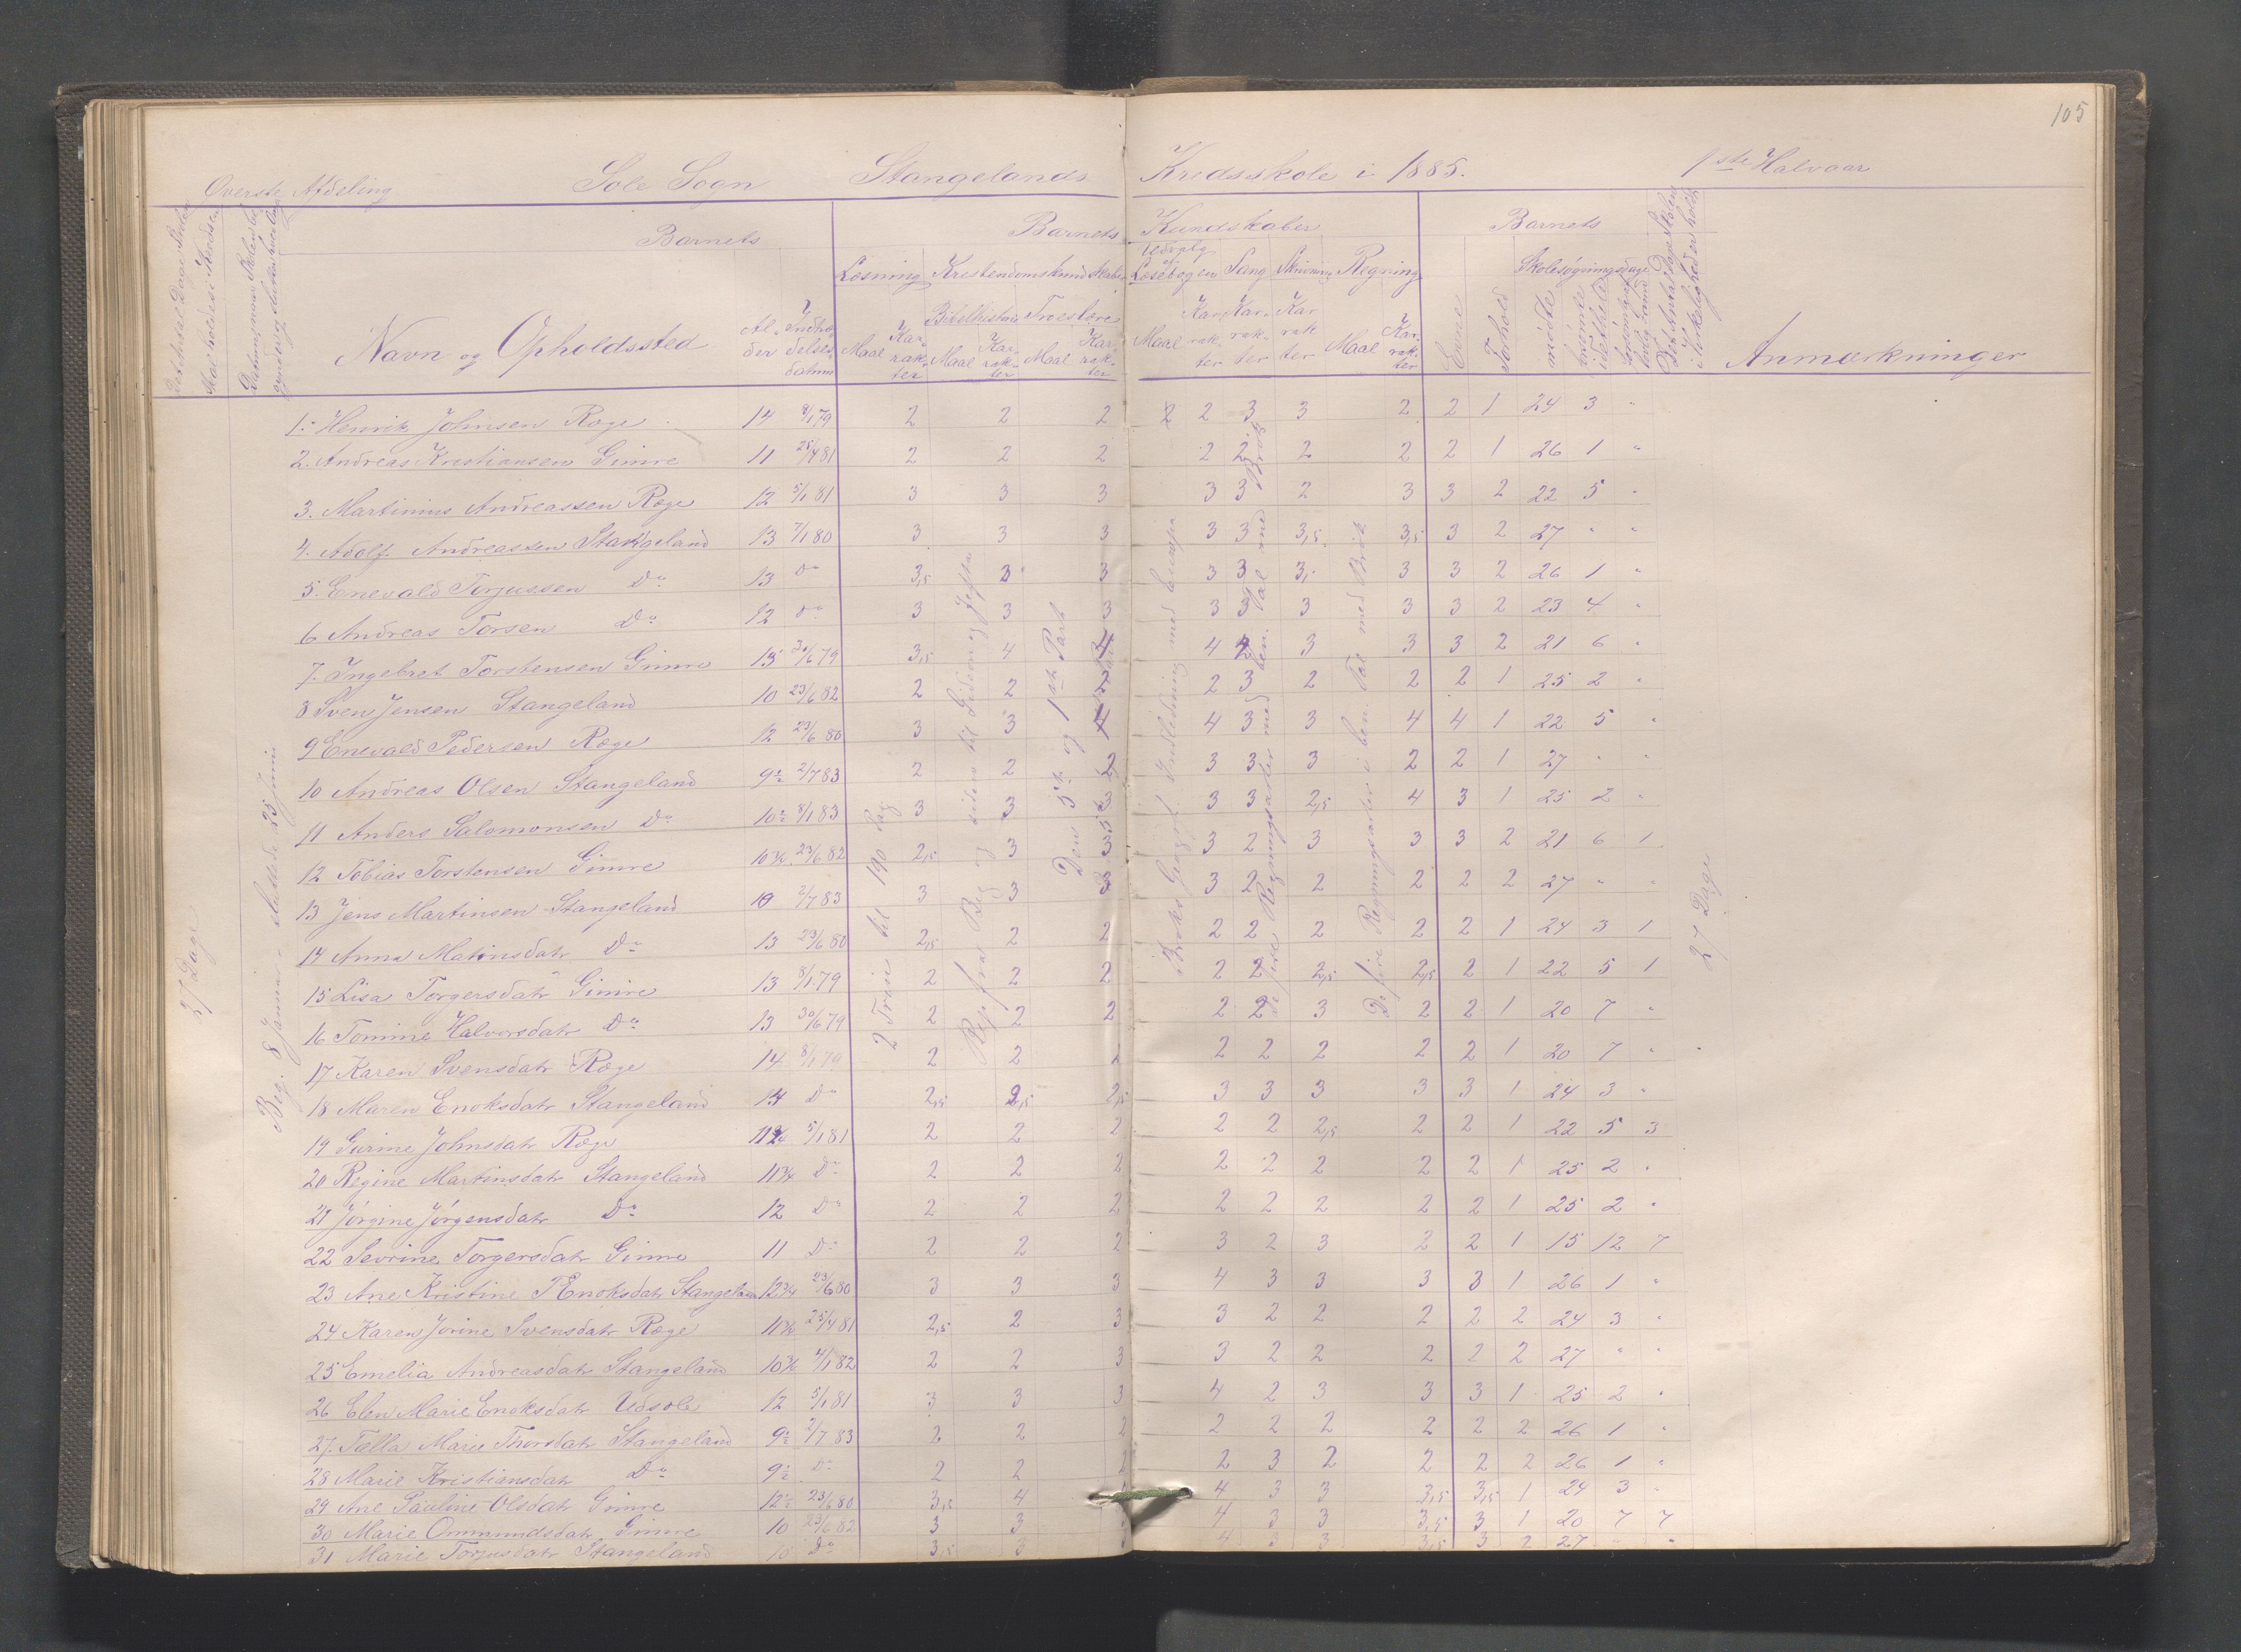 105
Overste Afdeling Sole Sogn Stangelands Kredsskole i 1885. 1ste Halvaar
Barnets Barnets Kundskaber Barnets
Læsning Kristendomskundskaber Udvalg af Læsebogen Sang Skrivning Regning Evne Forhold Skolesøgningsdage
Bibelhistorie Troeslære
Navn og Opholdssted Al-der Indtrædelsesdatum Maal Karrakter Maal Karrakter Maal Karrakter Maal Karrakter Karrakter Karrakter Maal Karrakter mødte forsømte Anmærkninger
1. Henrik Johnsen Ræge 14 8/1 79 2 2 2 2 3 3 2 2 1 24 3 "
2. Andreas Kristiansen Gimre 11 25/4 81 2 2 2 2 2 2 2 2 1 26 1 "
3. Martinius Andreassen Ræge 12 5/1 81 3 3 3 3 3 2 3 3 2 22 5 "
4. Adolf Andreassen Stangeland 13 7/1 80 3 3 3 3 3 3,5 3,5 3 2 27 " "
5. Enevald Torjussen Do 13 Do 3,5 3 3 3 3 3, 3 3 2 26 1 "
6 Andreas Torsen Do 12 Do 3 3 3 3 3 3 3 3 2 23 4 "
7. Ingebret Torstensen Gimre 13 30/6 79 3,5 4 4 4 4 3 3 3 2 21 6 "
8 Sven Jensen Stangeland 10 23/6 82 2 2 2 2 3 2 2 2 1 25 2 "
9 Enevald Pedersen Ræge 12 23/6 80 3 3 4 4 3 3 4 4 1 22 5 "
10 Andreas Olsen Stangeland 9½ 2/7 83 2 2 2 3 3 3 2 2 1 27 " "
11 Anders Salomonsen Do 10½ 8/1 83 3 3 3 3 3 2,5 4 3 1 25 2 "
12 Tobias Torstensen Gimre 10¾ 23/6 82 2,5 3 3 3 2 3 3 3 2 21 6 1
13 Jens Martinsen Stangeland 10 2/7 83 3 3 3 3 2 2 2 2 2 27 " "
14 Anna Matinsdatr Do 13 23/6 80 2,5 2 2 2 2 2 2 2 1 24 3 1
15 Lisa Torgersdatr Gimre 13 8/1 79 2 2 2 2 2 2,5 2,5 2 1 22 5 1
16 Tomine Halvorsdatr Do 13 30/6 79 2 2 2 2 2 3 2 2 1 20 7 "
17 Karen Svensdatr Ræge 14 8/1 79 2 2 2 2 2 2 2 2 1 20 7 "
18 Maren Enoksdatr Stangeland 14 Do 2,5 2,5 2,5 3 3 3 3 3 1 24 3 "
19 Gurine Johnsdatr Ræge 11¾ 5/1 81 2 2 2 2 2 2,5 2 2 1 22 5 3
20 Regine Martinsdatr Stangeland 11¾ Do 2 2 2 2 2 2 2 2 1 25 2 "
21 Jørgine Jørgensdatr Do 12 Do 2 2 2 2 2 2 2 2 1 25 2 "
22 Sevrine Torgersdatr Gimre 11 Do 2 2 2 3 2 3 2 2 1 15 12 7
23 Ane Kristine Enoksdatr Stangeland 12¾ 23/6 80 3 3 3 4 3 3 3 3 1 26 1 "
24 Karen Jorine Svensdatr Ræge 11½ 25/4 81 2,5 2 3 3 2 2 2 2 2 24 3 "
25 Emelia Andreasdatr Stangeland 10¾ 4/1 82 2 2 3 3 2 2 2 2 2 27 " "
26 Elen Marie Enoksdatr Udsole 12 5/1 81 3 3 3 4 2 3 3 3 1 25 2 "
27. Tælla Marie Thorsdatr Stangeland 9½ 2/7 83 2 2 2 2 2 2 2 2 2 26 1 "
28 Marie Kristiansdatr Do 9½ Do 2 2 2 2 3 2 2 2 2 26 1 "
29 Ane Pauline Olsdatr Gimre 12½ 23/6 80 3,5 4 4 3 3 3,5 3,5 1 24 3 "
30 Marie Ommundsdatr Gimre 10 23/6 82 3 3 4 3 3 3,5 3 1 20 7 7
31 Marie Torjusdatr Stangeland 10 Do 3,5 3 4 3 3 3,5 3 2 27 " "
27 Dage
Beg. 8 Januar sluttede 25 Juni
2 Trin til 190 Pag
Rep fra Beg og siden til Gideon og Jefta
Den 5te og 1ste Part
Broks Geograf. Indledning med Europa
De fire Regningsarter med ben. Tal med Brøk
De fire Regningsarter i ben. Tal med Brøk
27 Dage